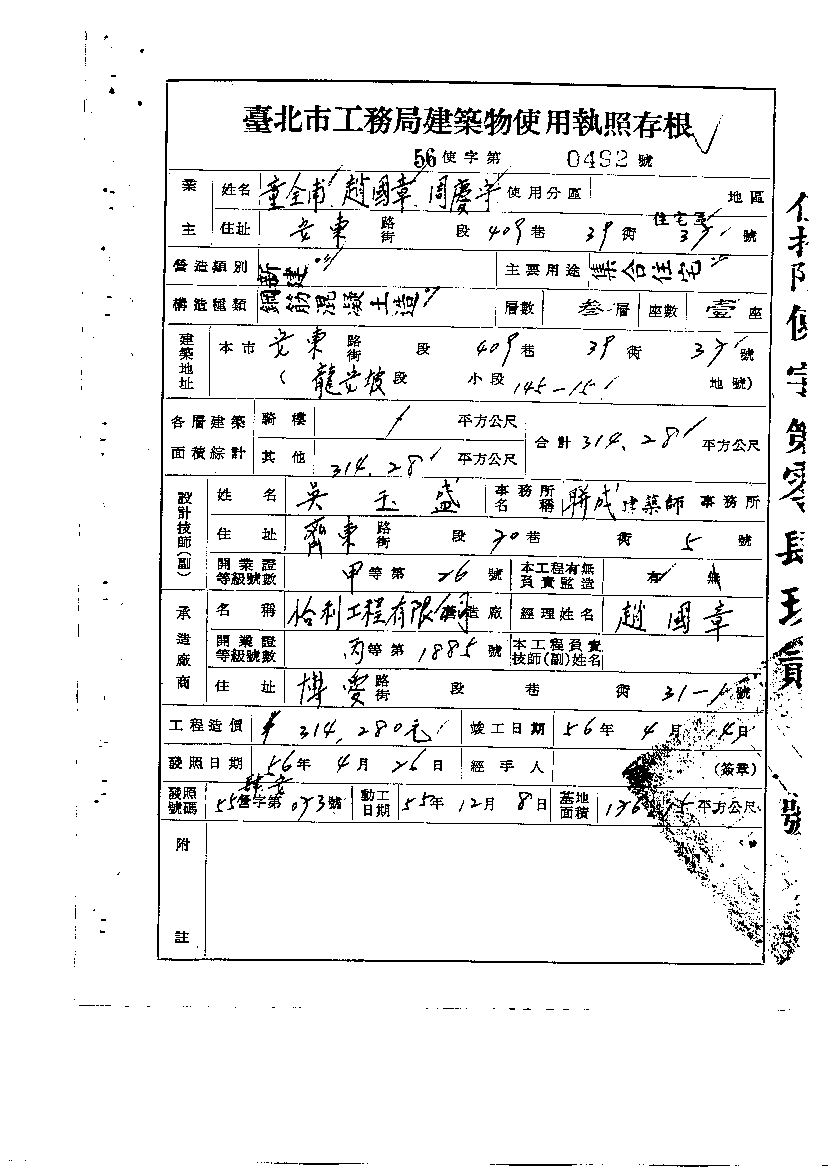 臺北市工務局建築物使用執照存根
56使字第 0492 號
業主 姓名 童全甫 趙國章 周慶宇 使用分區 地區
住宅區
住址 安東 路街 段 409 巷 39 衖 號
營造類別 新建 主要用途 集合住宅
構造種類 鋼筋混凝土造 層數 叁層 座數 壹座
建築地址 本市 安東 路街 段 409 巷 39 衖 號
( 龍安坡 段 小段 145-15 地號)
各層建築面積綜計 騎樓 / 平方公尺 合計 314.28 平方公尺
其他 314.28 平方公尺
設計技師(副) 姓名 吳玉盛 事務所名稱 聯成建築師事務所
住址 齊東 路街 段 30 巷 衖 5 號
開業證等級號數 甲等第 26 號 本工程有無負責監造 有 無
承造廠商 名稱 恰利工程有限公司 營造廠 經理姓名 趙國章
開業證等級號數 丙等第 1885 號 本工程負責技師(副)姓名
住址 博愛 路街 段 巷 衖 31-1 號
工程造價 314,280元 竣工日期 56年 4月 14日
發照日期 56年 4月 26日 經手人 (簽章)
發照號碼 55營字第 號 動工日期 55年 12月 8日 基地面積 平方公尺
附註